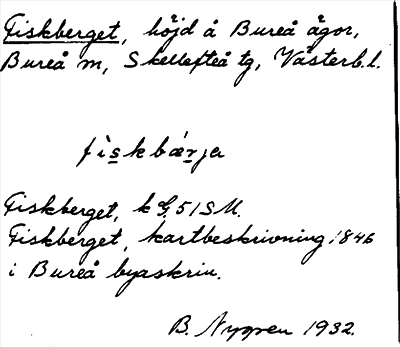 Fiskberget, höjd å Bureå ägor,
Bureå m, Skellefteå tg, Västerb. l.
fìskbærja
Fiskberget, k G. 51 S M.
Fiskberget, kartbeskrivning 1846
i Bureå byaskrin.
B. Nygren 1932.